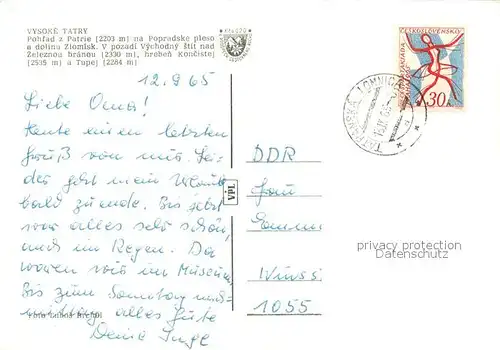 VYSOKÉ TATRY
Pohľad z Patrie (2203 m) na Popradské pleso
a dolinu Zlomísk. V pozadí Východný štít nad
Železnou bránou (2330 m), hrebeň Končistej
(2535 m) a Tupej (2284 m)
12.9.65
Liebe Oma!
Heute einen letzten
Gruß von mir. Lei-
der geht mein Urlaub
bald zu ende. Bis jetzt
war alles sehr schön,
auch im Regen. Da
waren wir im Museum.
Bis zum Sonntag nach-
mittag alles Gute
Deine Inge
VPL
DDR
Frau
1055
ČESKOSLOVENSKO
30
TATRANSKÁ LOMNICA
privacy protection
Datenschutz